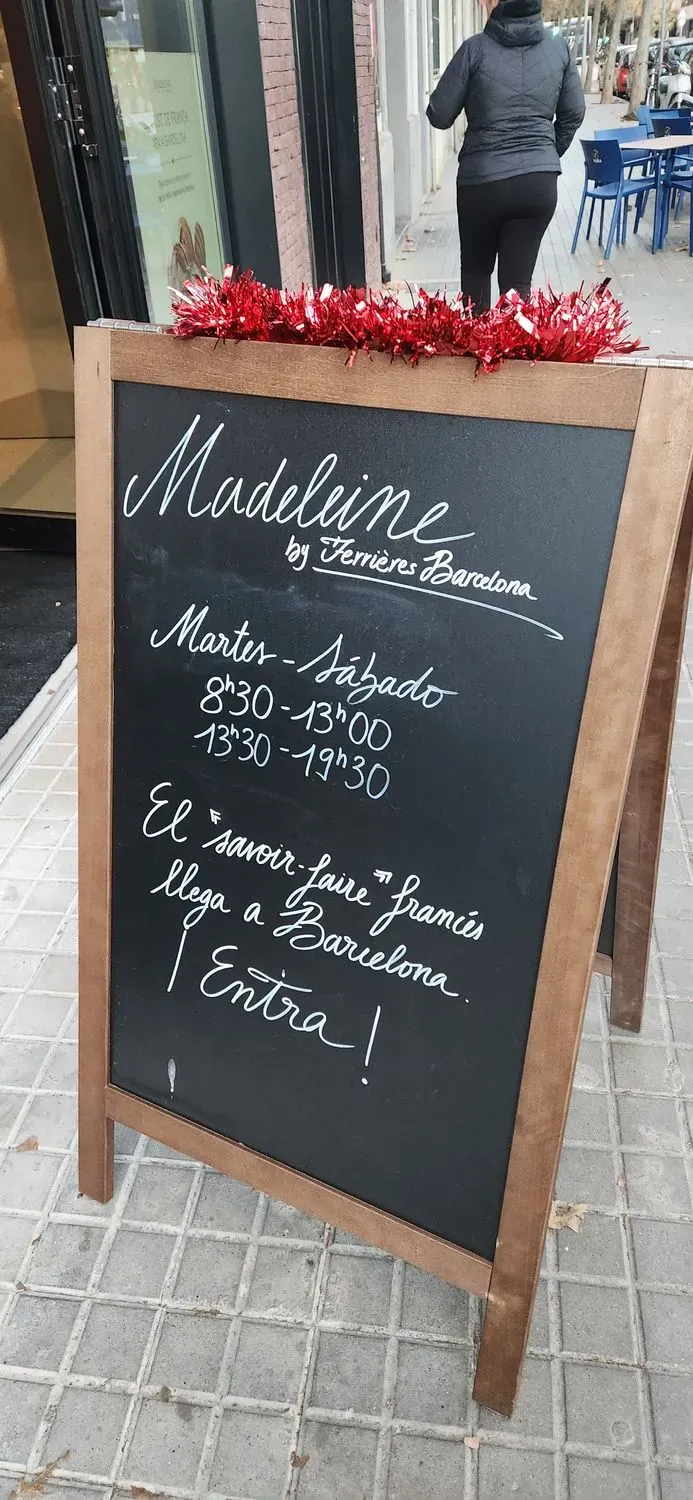 Madeleine
by Ferrières Barcelona
Martes - Sábado
8h30 - 13h00
13h30 - 19h30
El "savoir-faire" francés
llega a Barcelona.
¡ Entra !